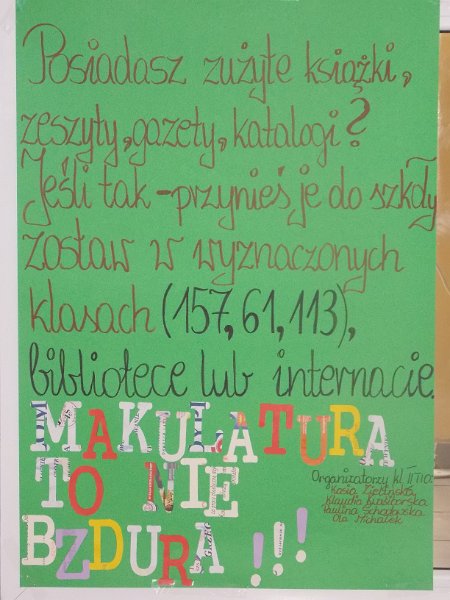 Posiadasz zużyte książki,
zeszyty, gazety, katalogi?
Jeśli tak - przynieś je do szkoły
zostaw w wyznaczonych
klasach (157, 61, 113),
bibliotece lub internacie.
MAKULATURA
TO NIE
BZDURA!!!
Organizatorzy kl. II TIO:
Kasia
Klaudia
Paulina
Ola Michałek